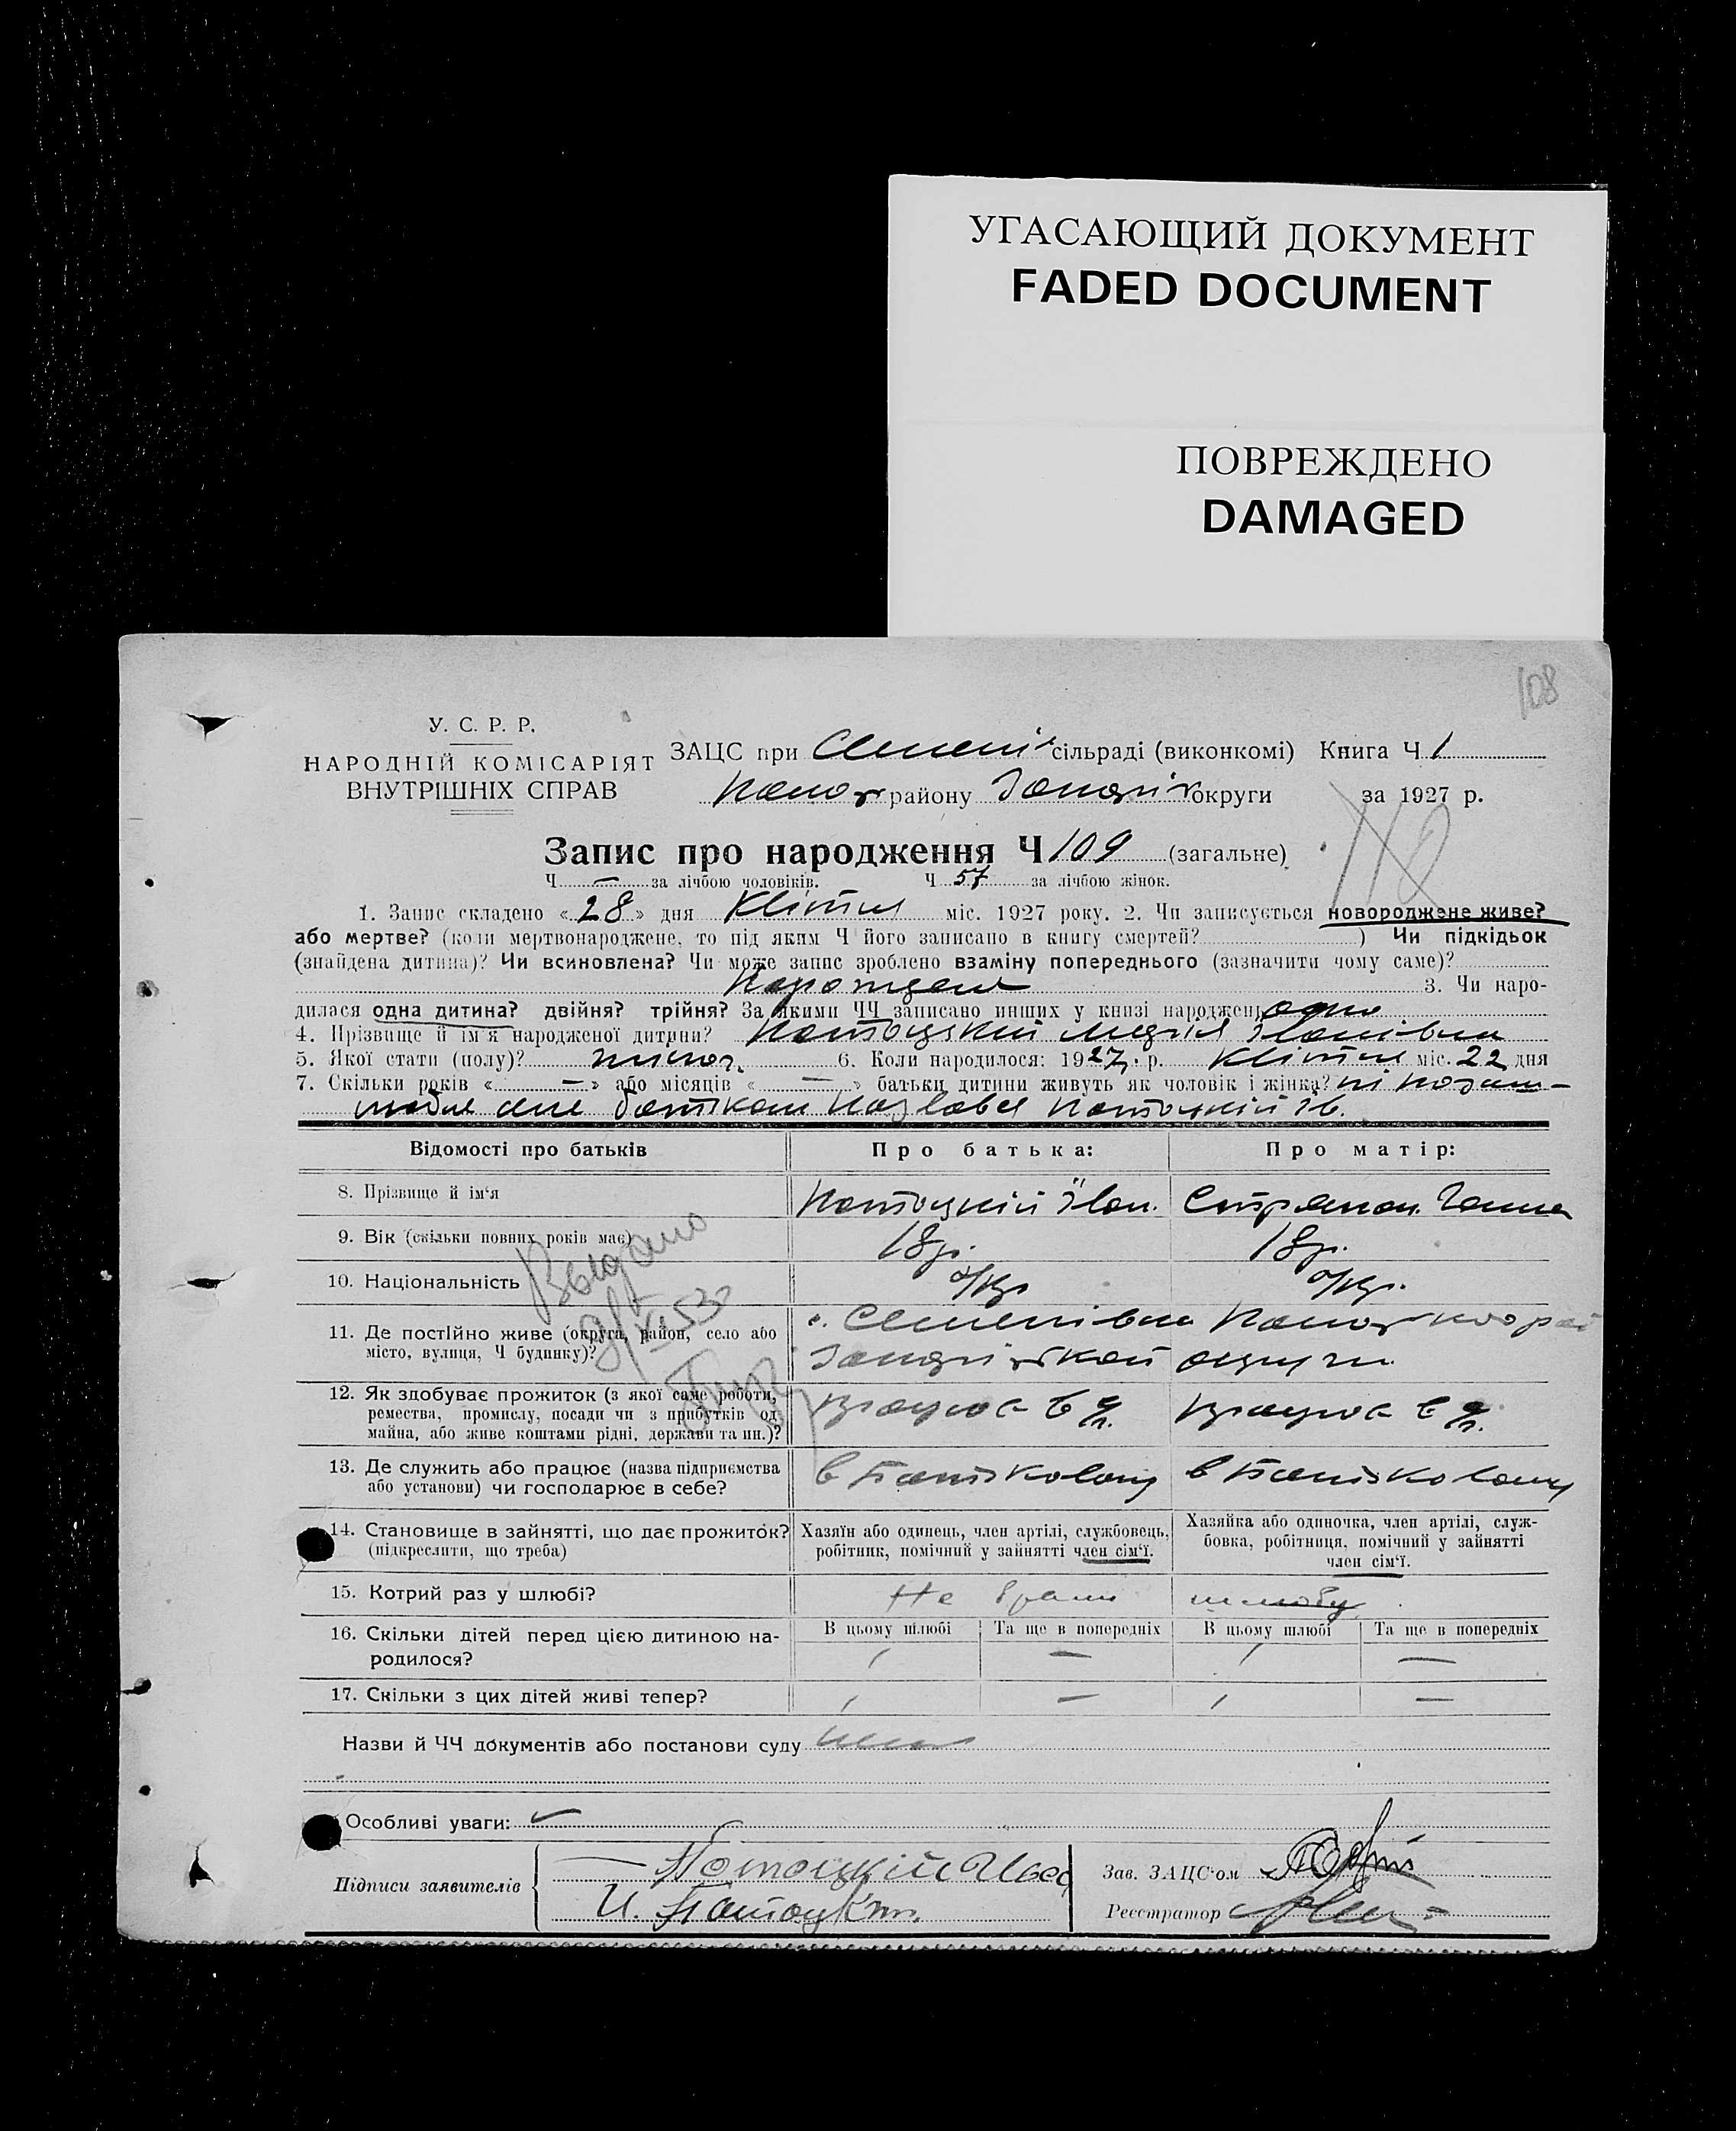 УГАСАЮЩИЙ ДОКУМЕНТ
FADED DOCUMENT
ПОВРЕЖДЕНО
DAMAGED
108
У. С. Р. Р.
НАРОДНІЙ КОМІСАРІЯТ
ВНУТРІШНІХ СПРАВ
ЗАЦС при Семені сільраді (виконкомі) Книга Ч 1
району округи за 1927 р.
Запис про народження Ч 109 (загальне)
Ч — за лічбою чоловіків. Ч 57 за лічбою жінок.
1. Запис складено «28» дня Квітня міс. 1927 року. 2. Чи записується новороджене живе?
або мертве? (коли мертвонароджене, то під яким Ч його записано в книгу смертей? ) Чи підкідьок
(знайдена дитина)? Чи всиновлена? Чи може запис зроблено взаміну попереднього (зазначити чому саме)?
3. Чи наро-
дилася одна дитина? двійня? трійня? За якими ЧЧ записано инших у книзі народжені одно
4. Прізвище й ім'я народженої дитини? Потоцкій Марія Іванівна
5. Якої стати (полу)? жіноч. 6. Коли народилося: 1927 р. Квітня міс. 22 дня
7. Скільки років «—» або місяців «—» батьки дитини живуть як чоловік і жінка?
себе батьком Потоцкій Ів.
Відомості про батьків Про батька: Про матір:
8. Прізвище й ім'я Потоцкій Іван. Ганна
9. Вік (скільки повних років має) 18 р. 18 р.
10. Національність Укр Укр.
11. Де постійно живе (округа, район, село або
місто, вулиця, Ч будинку)? с. Семенівка
округи
12. Як здобуває прожиток (з якої саме роботи,
ремества, промислу, посади чи з прибутків од
майна, або живе коштами рідні, держави та ин.)?
13. Де служить або працює (назва підприємства
або установи) чи господарює в себе? в Батьковому в Батьковому
14. Становище в зайнятті, що дає прожиток?
(підкреслити, що треба)
Хазяїн або одинець, член артілі, службовець,
робітник, помічний у зайнятті член сім'ї.
Хазяйка або одиночка, член артілі, служ-
бовка, робітниця, помічний у зайнятті
член сім'ї.
15. Котрий раз у шлюбі? Не брали шлюбу
16. Скільки дітей перед цією дитиною на-
родилося?
В цьому шлюбі Та ще в попередніх В цьому шлюбі Та ще в попередніх
/ — / —
17. Скільки з цих дітей живі тепер? / — / —
Назви й ЧЧ документів або постанови суду
Особливі уваги:
Підписи заявителів Потоцкій Иван
И. Потоцкій
Зав. ЗАЦС'ом
Реєстратор
Выдано